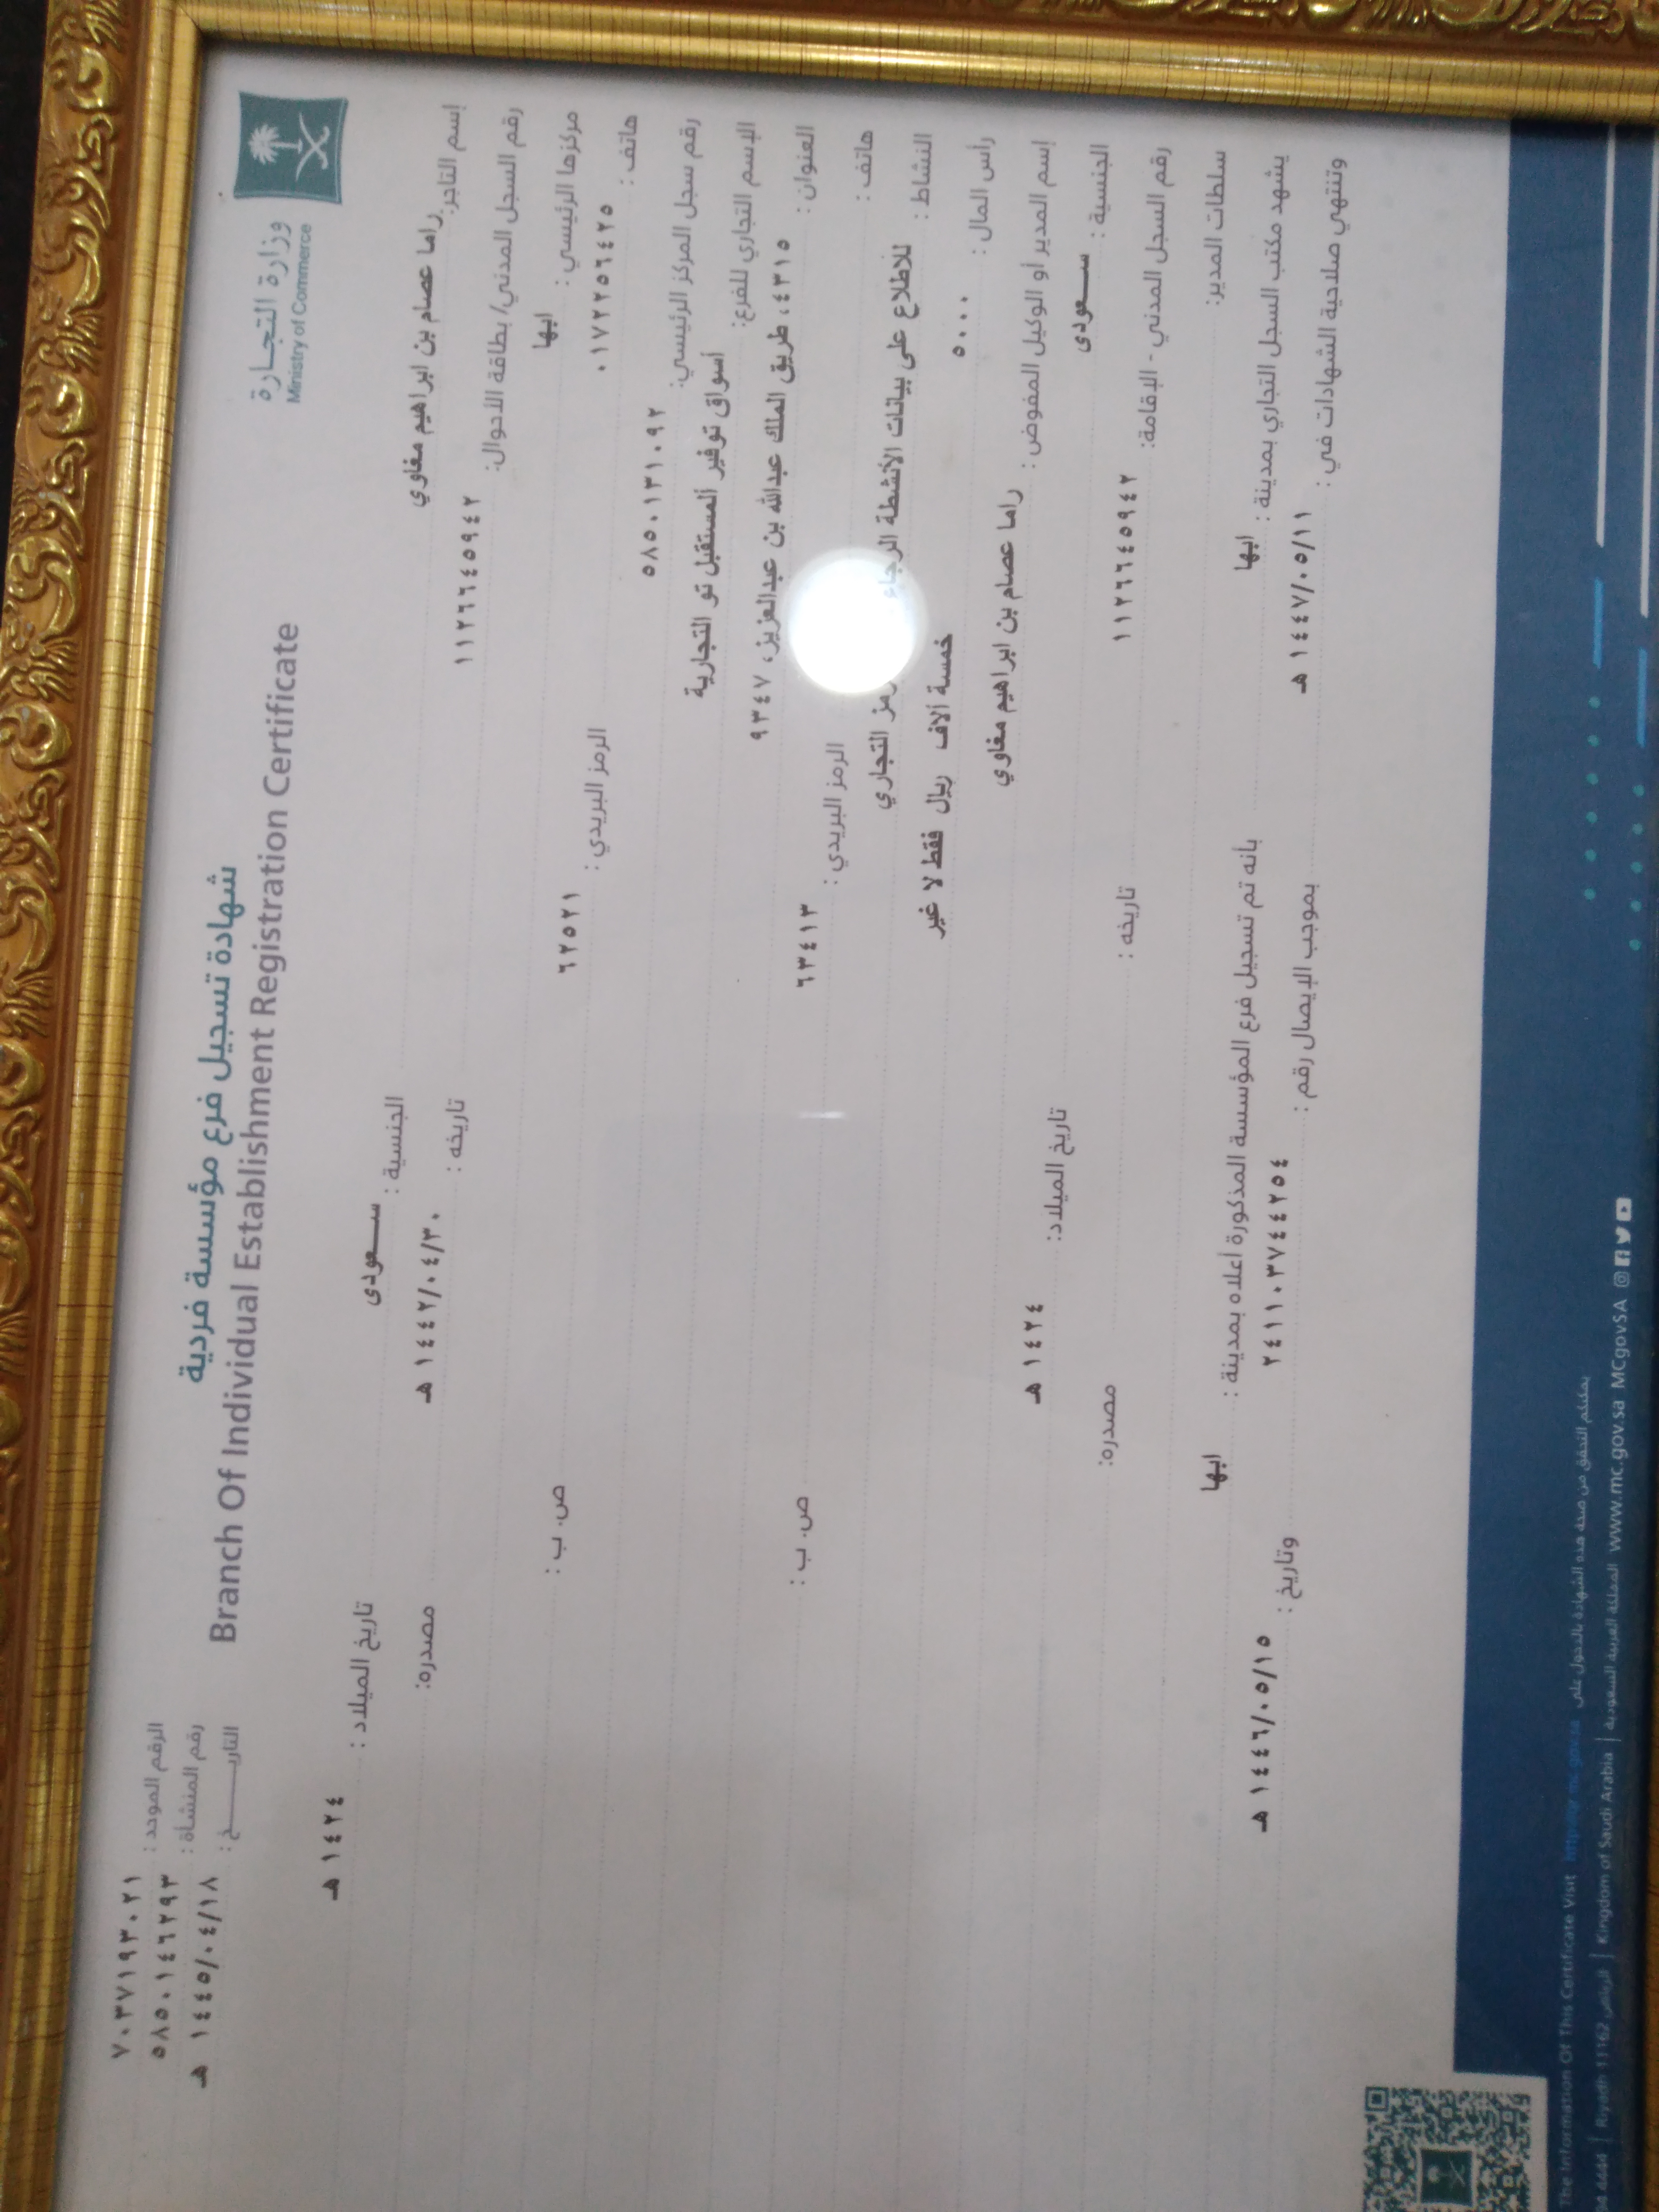 وزارة التجارة
Ministry of Commerce
شهادة تسجيل فرع مؤسسة فردية
Branch Of Individual Establishment Registration Certificate
الرقم الموحد : ٧٠٣٧١٩٣٠٢١
رقم المنشأة : ٥٨٥٠١٤٦٢٩٣
التاريـــــــخ : ١٤٤٥/٠٤/١٨ هـ
إسم التاجر: راما عصام بن ابراهيم مغاوي الجنسية : سـعودى تاريخ الميلاد : ١٤٢٤ هـ
رقم السجل المدني/ بطاقة الأحوال: ١١٢٦٦٤٥٩٤٢ تاريخه : ١٤٤٢/٠٤/٣٠ هـ مصدره:
مركزها الرئيسي : ابها
هاتف : ٠١٧٢٢٥٦٤٢٥ الرمز البريدي : ٦٢٥٢١ ص. ب :
رقم سجل المركز الرئيسي: ٥٨٥٠١٣١٠٩٢
الإسم التجاري للفرع: أسواق توفير المستقبل تو التجارية
العنوان : ٤٣١٥، طريق الملك عبدالله بن عبدالعزيز، ٩٣٤٧
هاتف : الرمز البريدي : ٦٣٤١٣ ص. ب :
النشاط : للاطلاع على بيانات الأنشطة الرجاء رمز التجاري
رأس المال : ٥٠٠٠ خمسة آلاف ريال فقط لا غير
إسم المدير أو الوكيل المفوض : راما عصام بن ابراهيم مغاوي تاريخ الميلاد: ١٤٢٤ هـ
الجنسية : سـعودى
رقم السجل المدني - الإقامة: ١١٢٦٦٤٥٩٤٢ تاريخه : مصدره:
سلطات المدير:
يشهد مكتب السجل التجاري بمدينة : ابها بأنه تم تسجيل فرع المؤسسة المذكورة أعلاه بمدينة : ابها
وتنتهي صلاحية الشهادات في : ١٤٤٧/٠٥/١١ هـ بموجب الإيصال رقم : ٢٤١١٠٣٧٤٤٢٥٤ وتاريخ : ١٤٤٦/٠٥/١٥ هـ
The Information Of This Certificate Visit يمكنكم التحقق من صحة هذه الشهادة بالدخول على
4444 | Riyadh 11162 الرياض | Kingdom of Saudi Arabia | المملكة العربية السعودية www.mc.gov.sa MCgovSA